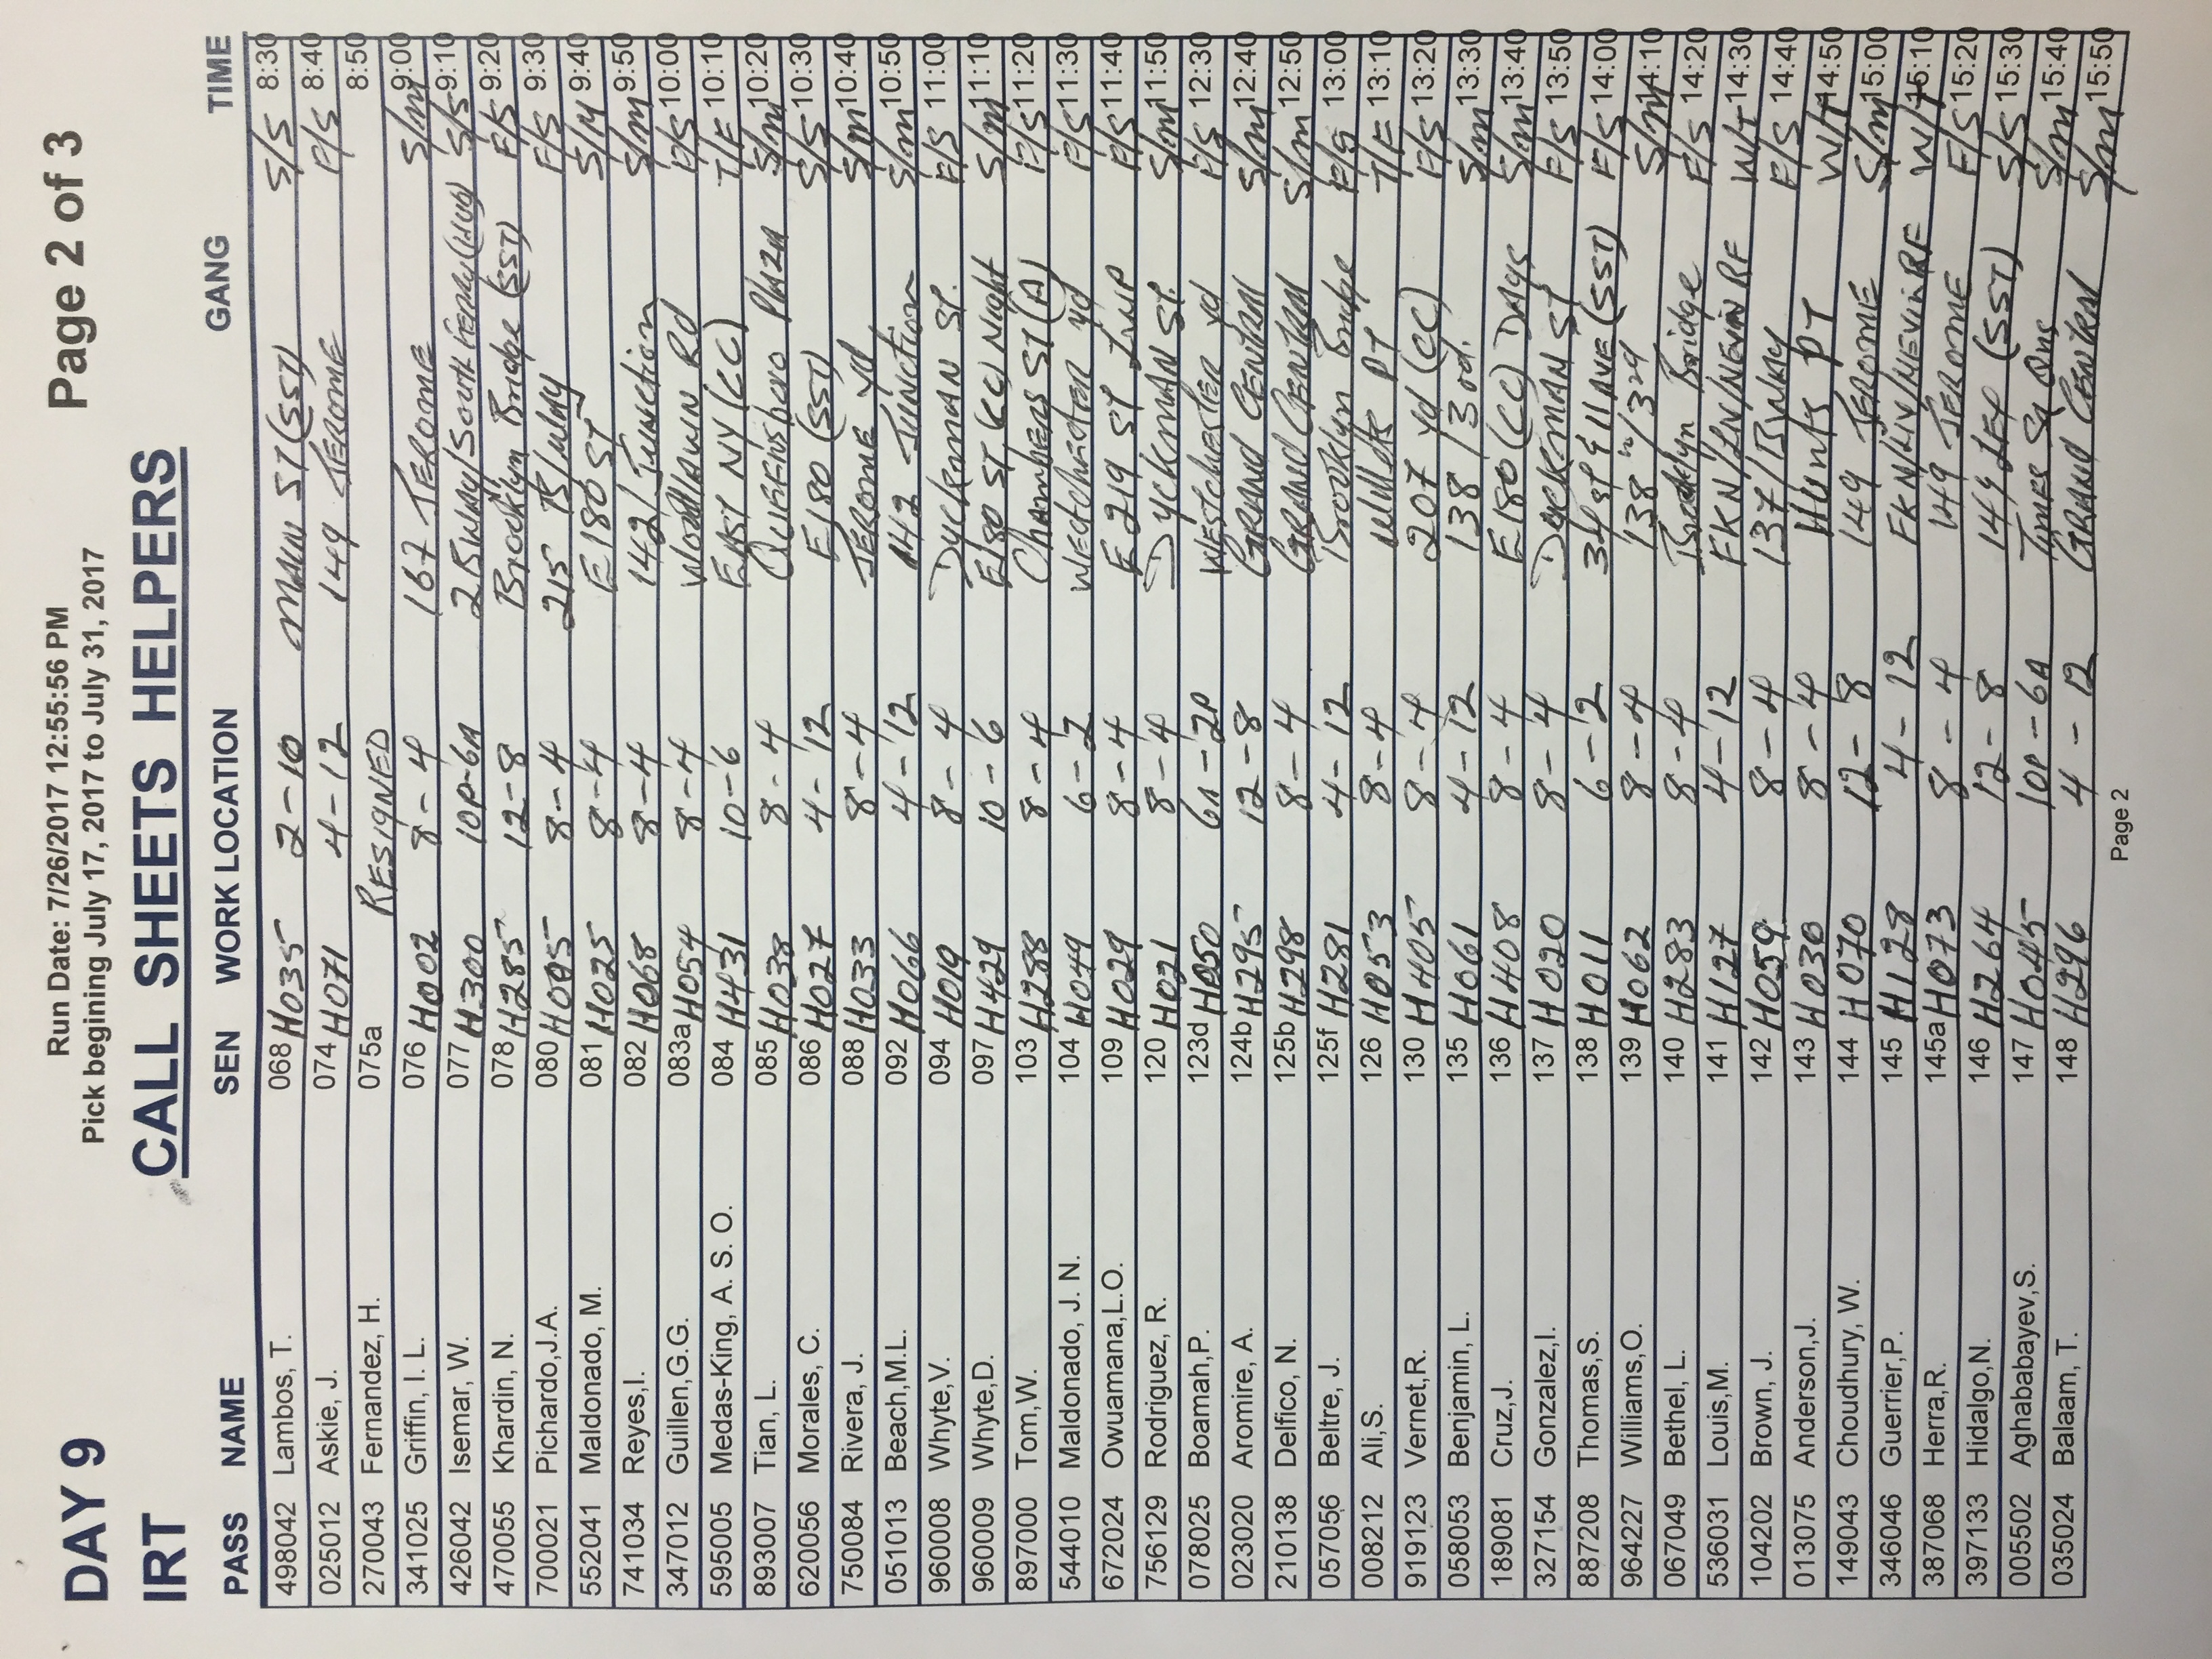 Run Date: 7/26/2017 12:55:56 PM
DAY 9 Pick beginning July 17, 2017 to July 31, 2017 Page 2 of 3
IRT CALL SHEETS HELPERS
PASS NAME SEN WORK LOCATION GANG TIME
498042 Lambos, T. 068 H035 2-10 MAIN ST (SST) S/S 8:30
025012 Askie, J. 074 H071 4-12 149 JEROME F/S 8:40
270043 Fernandez, H. 075a RESIGNED 8:50
341025 Griffin, I. L. 076 H002 8-4 167 JEROME S/M 9:00
426042 Isemar, W. 077 H300 10P-6A 215 WAY/South FERRY (HUB) S/S 9:10
470055 Khardin, N. 078 H285 12-8 Brooklyn Bridge (SST) F/S 9:20
700021 Pichardo,J.A. 080 H005 8-4 215 /WAY F/S 9:30
552041 Maldonado, M. 081 H025 8-4 E 180 ST S/M 9:40
741034 Reyes,I. 082 H068 8-4 142/Junction S/M 9:50
347012 Guillen,G.G. 083a H054 8-4 Woodlawn Rd F/S 10:00
595005 Medas-King, A. S. O. 084 H431 10-6 EAST NY (CC) T/F 10:10
893007 Tian, L. 085 H038 8-4 QUEENSboro PLAZA S/M 10:20
620056 Morales, C. 086 H027 4-12 E180 (SST) S/S 10:30
750084 Rivera, J. 088 H033 8-4 JEROME yd S/M 10:40
051013 Beach,M.L. 092 H066 4-12 142 Junction S/M 10:50
960008 Whyte,V. 094 H019 8-4 Dyckman ST. F/S 11:00
960009 Whyte,D. 097 H429 10-6 E180 ST (CC) Night S/M 11:10
897000 Tom,W. 103 H288 8-4 Chambers ST (A) F/S 11:20
544010 Maldonado, J. N. 104 H049 6-2 Westchester yd F/S 11:30
672024 Owuamana,L.O. 109 H029 8-4 E 219 ST F/S 11:40
756129 Rodriguez, R. 120 H021 8-4 Dyckman ST. S/M 11:50
078025 Boamah,P. 123d H050 6A-2P WESTCHESTER yd F/S 12:30
023020 Aromire, A. 124b H295 12-8 GRAND CENTRAL S/M 12:40
210138 Delfico, N. 125b H298 8-4 GRAND CENTRAL S/M 12:50
057056 Beltre, J. 125f H281 4-12 Brooklyn Bridge F/S 13:00
008212 Ali,S. 126 H053 8-4 Willets PT T/F 13:10
919123 Vernet,R. 130 H405 8-4 207 yd (CC) F/S 13:20
058053 Benjamin, L. 135 H061 4-12 138/3rd. S/M 13:30
189081 Cruz,J. 136 H408 8-4 E180 (CC) DAYS S/M 13:40
327154 Gonzalez,I. 137 H020 8-4 DYCKMAN ST F/S 13:50
887208 Thomas,S. 138 H011 6-2 34 ST & 11 AVE (SST) F/S 14:00
964227 Williams,O. 139 H062 8-4 138/3rd S/M 14:10
067049 Bethel, L. 140 H283 8-4 Brooklyn Bridge F/S 14:20
536031 Louis,M. 141 H127 4-12 FKN/LIV/NEVIN RF W/T 14:30
104202 Brown, J. 142 H059 8-4 137/BWAY F/S 14:40
013075 Anderson,J. 143 H030 8-4 Hunts PT W/T 14:50
149043 Choudhury, W. 144 H070 12-8 149 JEROME S/M 15:00
346046 Guerrier,P. 145 H128 4-12 FKN/LIV/NEVIN RF W/T 15:10
387068 Herra,R. 145a H073 8-4 149 JEROME F/S 15:20
397133 Hidalgo,N. 146 H264 12-8 149 LEX (SST) S/S 15:30
005502 Aghababayev,S. 147 H045 10P-6A Times SQ Qns S/M 15:40
035024 Balaam, T. 148 H296 4-12 GRAND CENTRAL S/M 15:50
Page 2